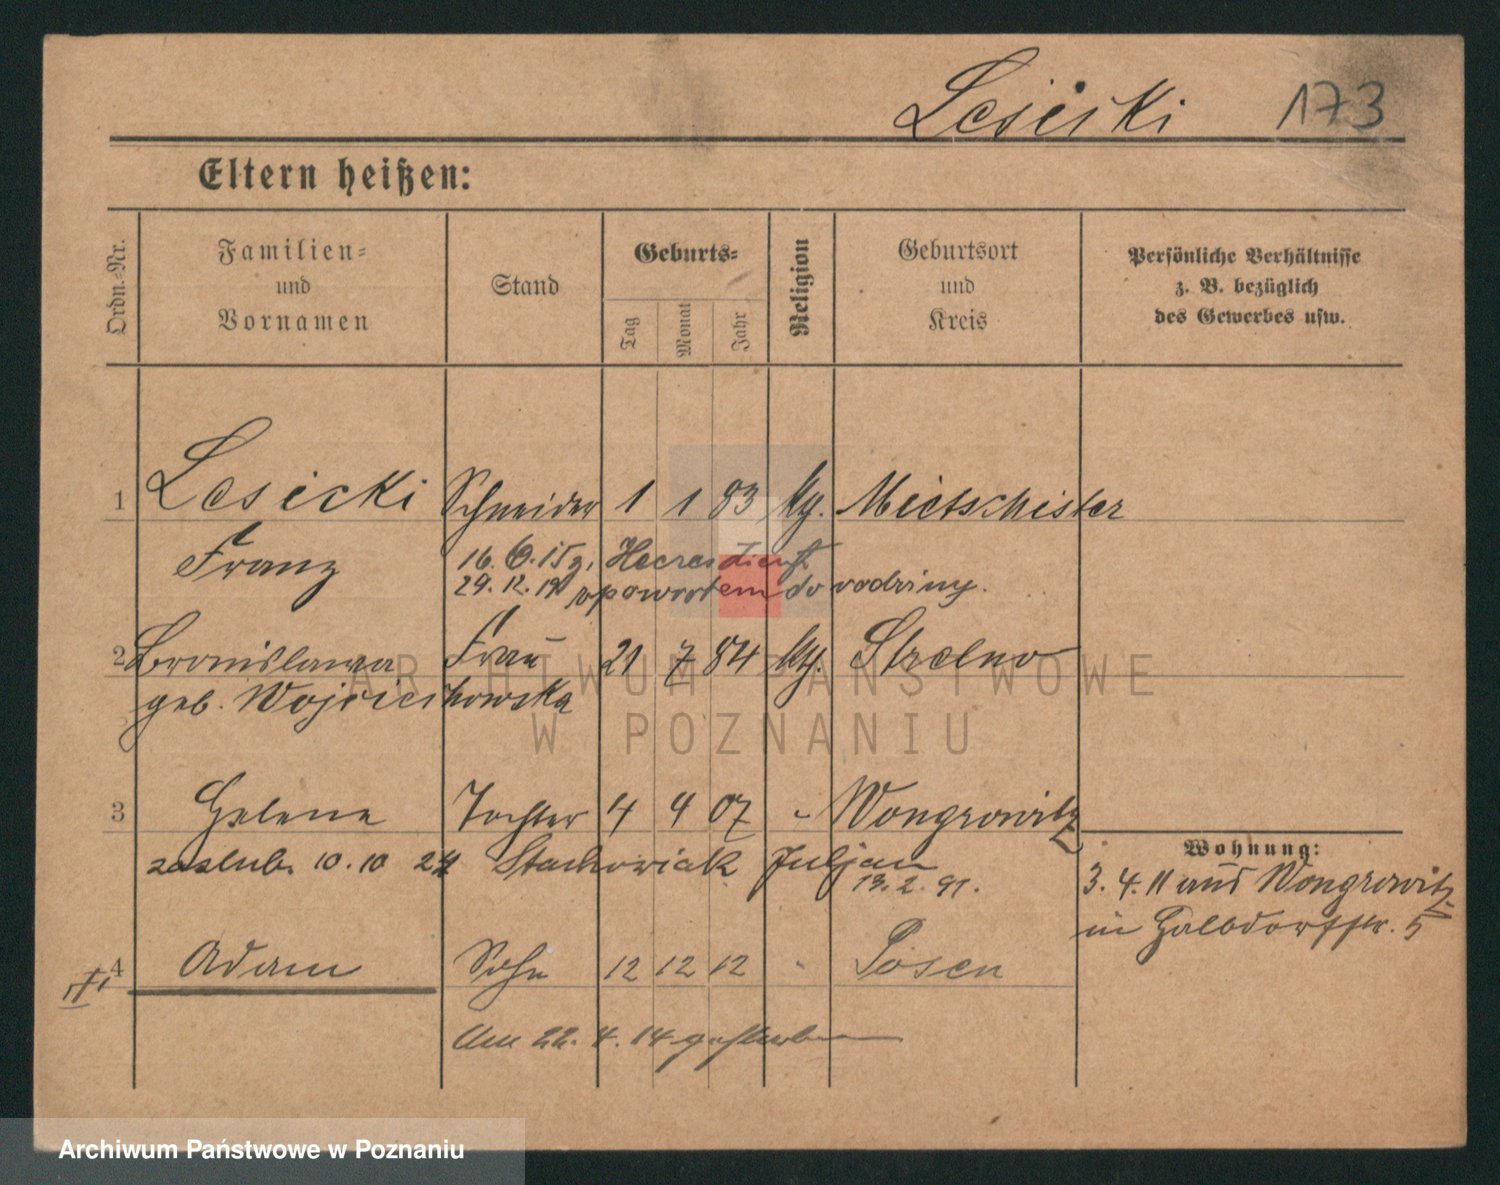 Lesicki 173
Eltern heißen:
Ordn.-Nr.
Familien-
und
Vornamen
Stand
Geburts-
Tag
Monat
Jahr
Religion
Geburtsort
und
Kreis
Persönliche Verhältnisse
z. B. bezüglich
des Gewerbes usw.
1 Lesicki Schneider 1 1 83 kg. Mietschister
Franz 16. 6. 15 z. Heeresdienst
29. 12. 19 z powrotem do rodziny.
2 Bronislawa Frau 21 7 84 kg. Strelno
geb. Wojciechowska
ARCHIWUM PAŃSTWOWE
W POZNANIU
3 Helene Tochter 4 9 07 " Wongrowitz
zaslub. 10. 10 24 Stachowiak Juljan
13. 2. 91.
Wohnung:
3. 4. 11 aus Wongrowitz
in Halbdorfstr. 5
4 Adam Sohn 12 12 12 " Posen
Am 22. 4. 14 gestorben
Archiwum Państwowe w Poznaniu